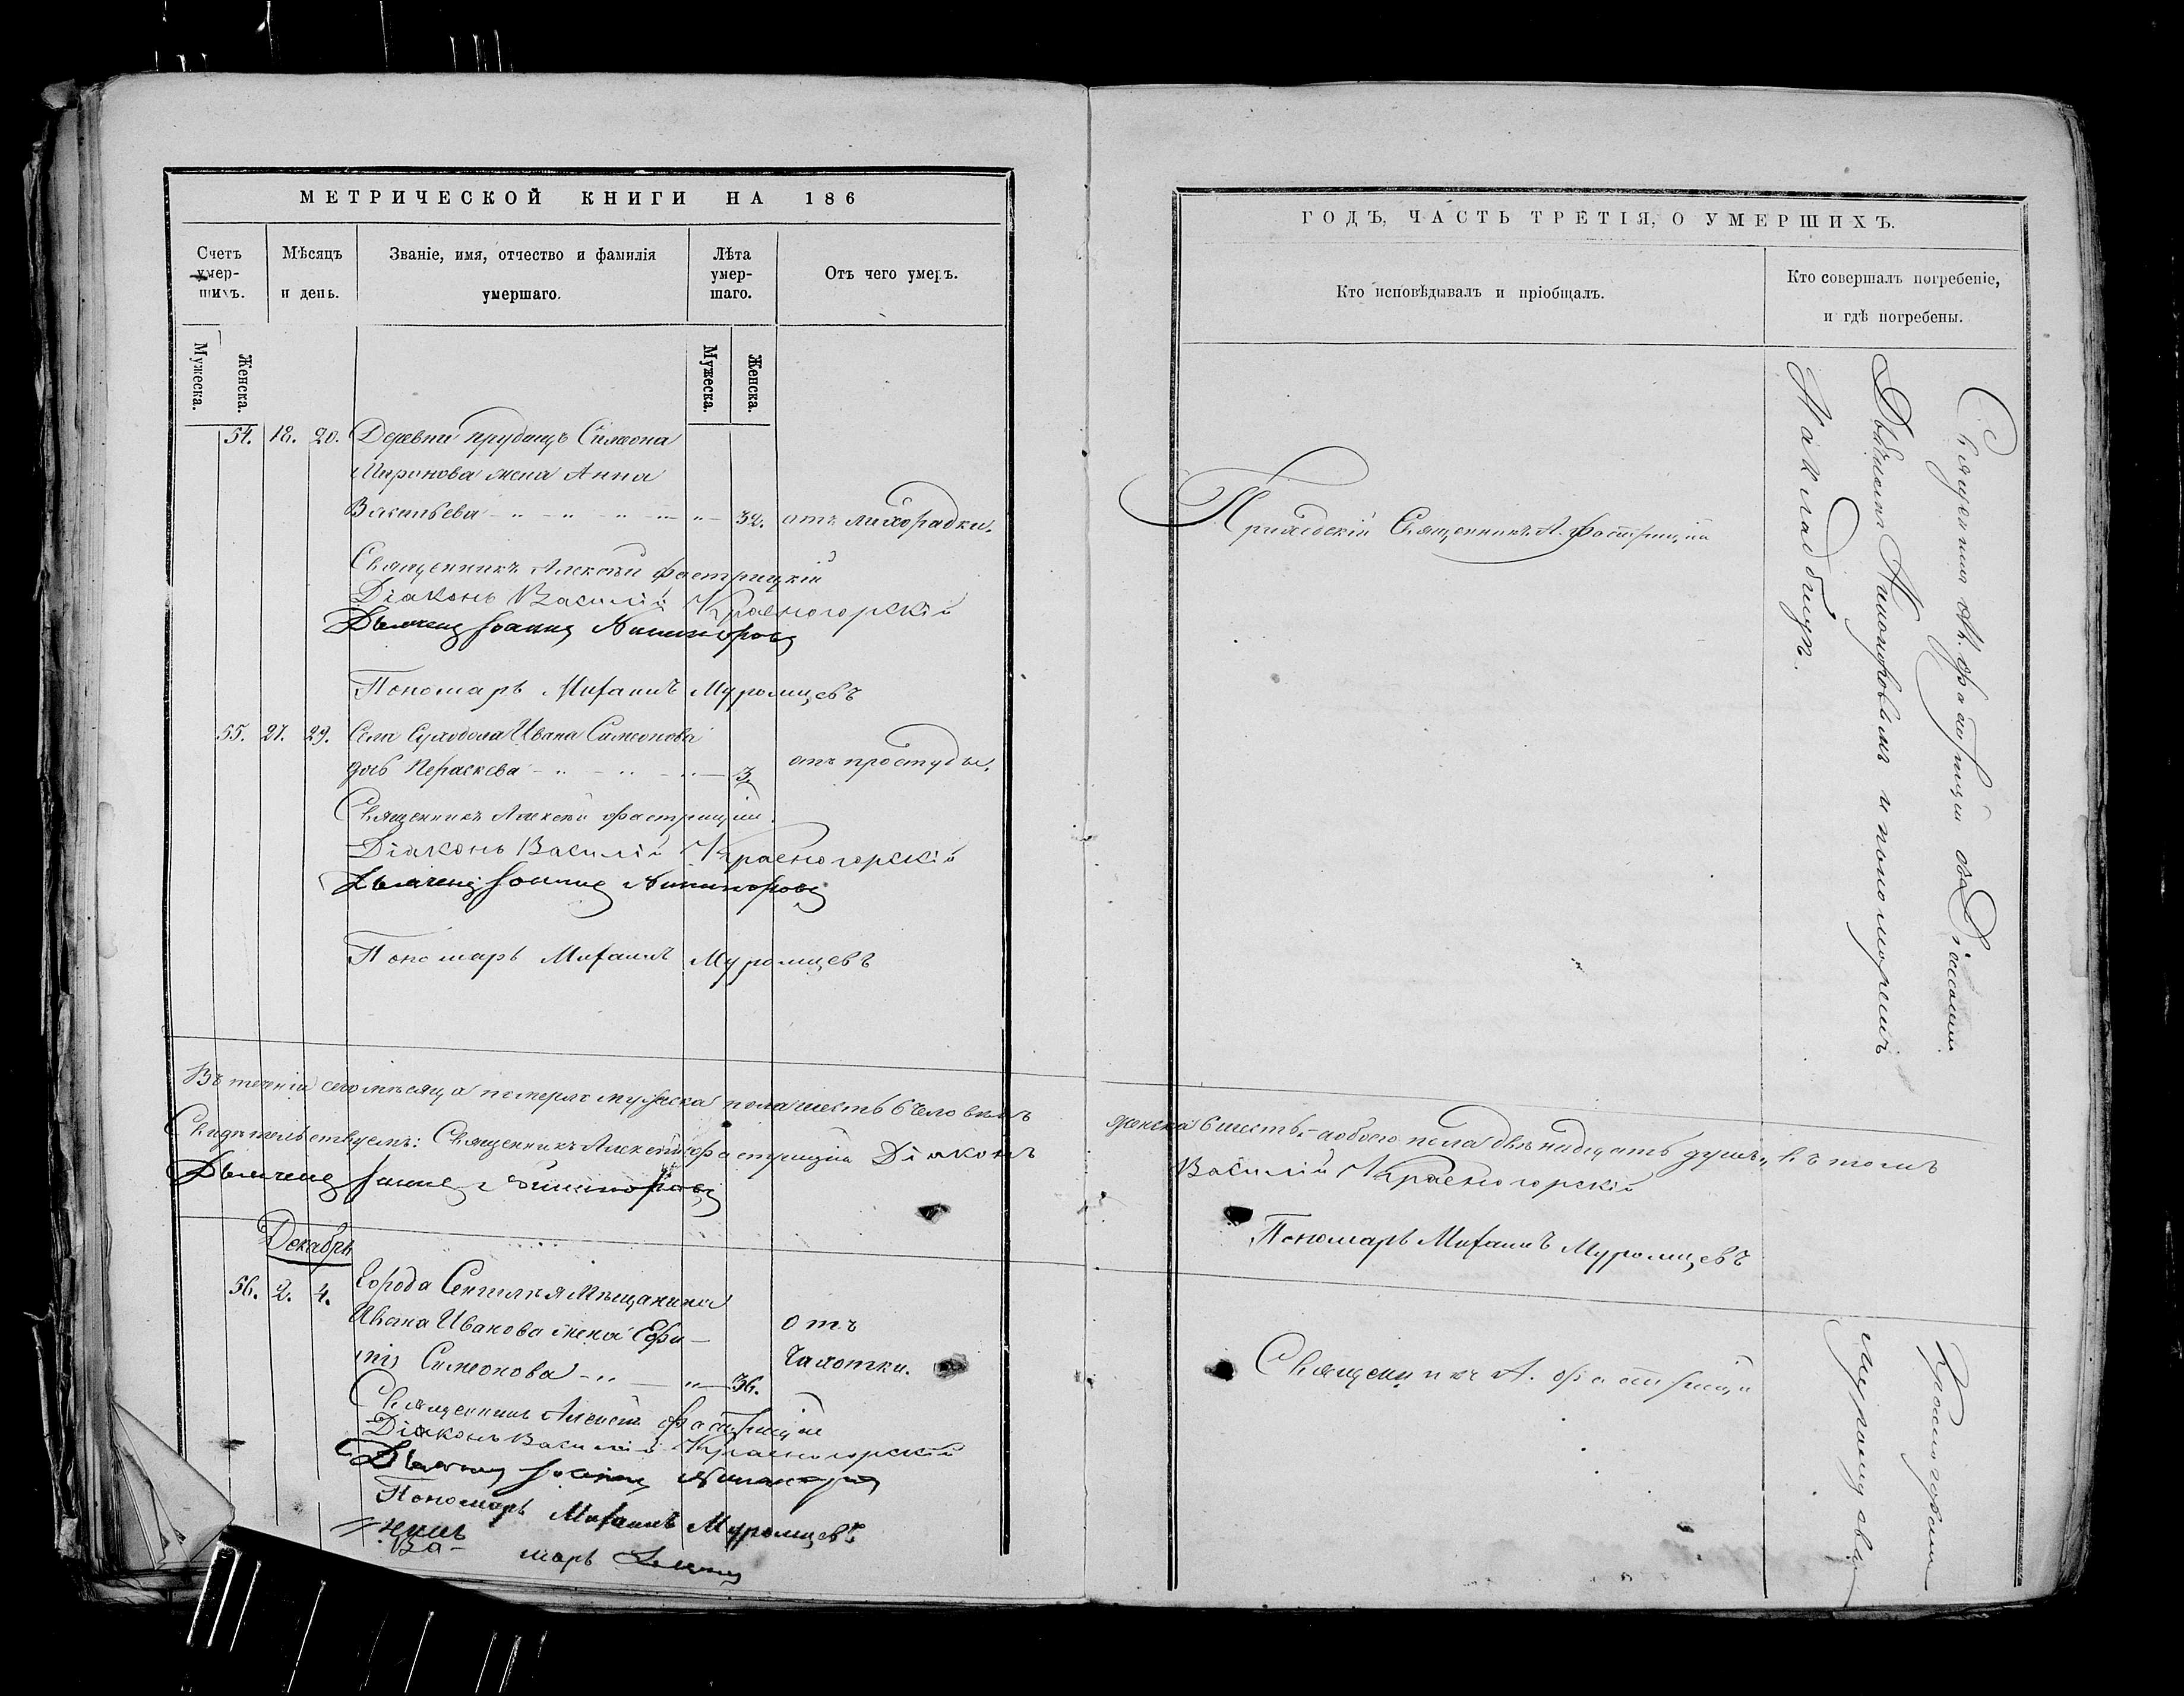 МЕТРИЧЕСКОЙ КНИГИ НА 186
Счетъ умер-шихъ.
Мѣсяцъ и день.
Званіе, имя, отчество и фамилія умершаго.
Лѣта умер-шаго.
Отъ чего умеръ.
Мужеска.
Женска.
Мужеска.
Женска.
54. 18. 20. Деревни Прудищъ Симеона
Миронова жена Анна
Васильева - " - " - " - " - 32. отъ лихорадки.
Священникъ Алексѣй Фастрицкій
Діаконъ Василій Красногорскій
Дьячекъ Іоаннъ Никифоровъ
Пономарь Михаилъ Муромцевъ
55. 27. 29. Села Суходола Ивана Симеонова
дочь Параскева - " - " - " - 3. отъ простуды.
Священникъ Алексѣй Фастрицкій
Діаконъ Василій Красногорскій
Дьячекъ Іоаннъ Никифоровъ
Пономарь Михаилъ Муромцевъ
Въ теченіи сего мѣсяца померло мужеска пола шесть 6 человѣкъ
Свидѣтельствуемъ: Священникъ Алексѣй Фастрицкій Діаконъ
Дьячекъ Іоаннъ Никифоровъ
Декабрь
56. 2. 4. Города Сенгилея Мѣщанина
Ивана Иванова жена Ефи-
мія Симеонова - " - " - 36.
отъ
чахотки.
Священникъ Алексѣй Фастрицкій
Діаконъ Василій Красногорскій
Дьячекъ Іоаннъ Никифоровъ
Пономарь Михаилъ Муромцевъ
Ва-
марь
ГОДЪ, ЧАСТЬ ТРЕТІЯ, О УМЕРШИХЪ.
Кто исповѣдывалъ и пріобщалъ.
Кто совершалъ погребеніе,
и гдѣ погребены.
Приходскій Священникъ А. Фастрицкій
Священникъ А. Фастрицкій съ Діакономъ
Дьячкомъ Никифоровымъ и пономаремъ
На кладбищѣ.
женска 6 шесть, - а обоего пола двѣнадцать душъ, въ томъ
Василій Красногорскій
Пономарь Михаилъ Муромцевъ
Священникъ А. Фастрицкій
Красногорскимъ
Муромцевымъ